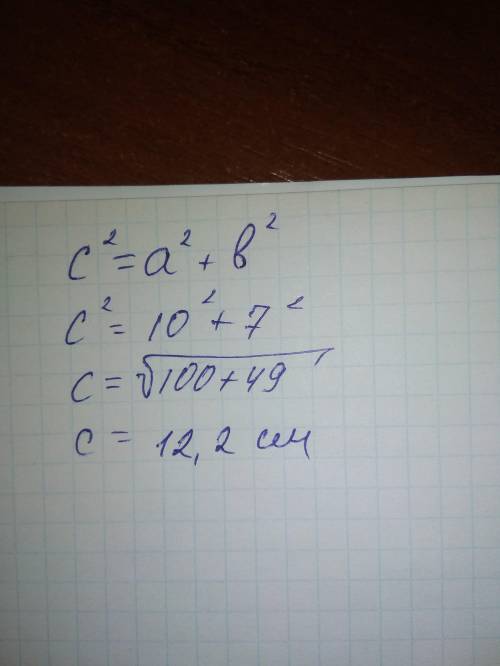 c² = a² + в²
c² = 10² + 7²
c = √100+49
c = 12,2 см